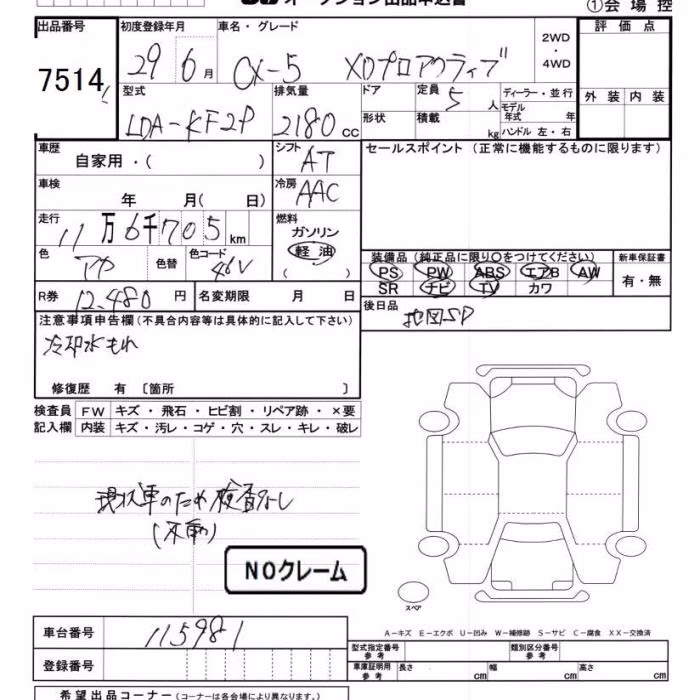 オークション出品申込書 ①会場控
出品番号 初度登録年月 車名・グレード 2WD ・ 4WD 評価点
7514 29 6月 CX-5 XDプロアクティブ
型式 排気量 ドア 定員 5人 ディーラー・並行 外装 内装
LDA-KF2P 2180cc 形状 積載 kg モデル年式 年
ハンドル 左・右
車歴 自家用・( ) シフト AT セールスポイント (正常に機能するものに限ります)
車検 年 月( 日) 冷房 AAC
走行 11万6千705km 燃料 ガソリン
軽油
( )
色 アカ 色替 色コード 46V
装備品 (純正品に限り○をつけてください) 新車保証書
PS PW ABS エアB AW 有・無
SR ナビ TV カワ
R券 12,480円 名変期限 月 日 後日品
地図SD
注意事項申告欄 (不具合内容等は具体的に記入して下さい)
冷却水もれ
修復歴 有 〔箇所 〕
検査員 FW キズ・飛石・ヒビ割・リペア跡・×要
記入欄 内装 キズ・汚レ・コゲ・穴・スレ・キレ・破レ
現状車のため検査なし
(不動)
NOクレーム
スペア
車台番号 115981
A－キズ E－エクボ U－凹み W－補修跡 S－サビ C－腐食 XX－交換済
登録番号
型式指定番号 参考 類別区分番号 参考
車庫証明用 参考 長さ cm 幅 cm 高さ cm
希望出品コーナー (コーナーは各会場により異なります。)